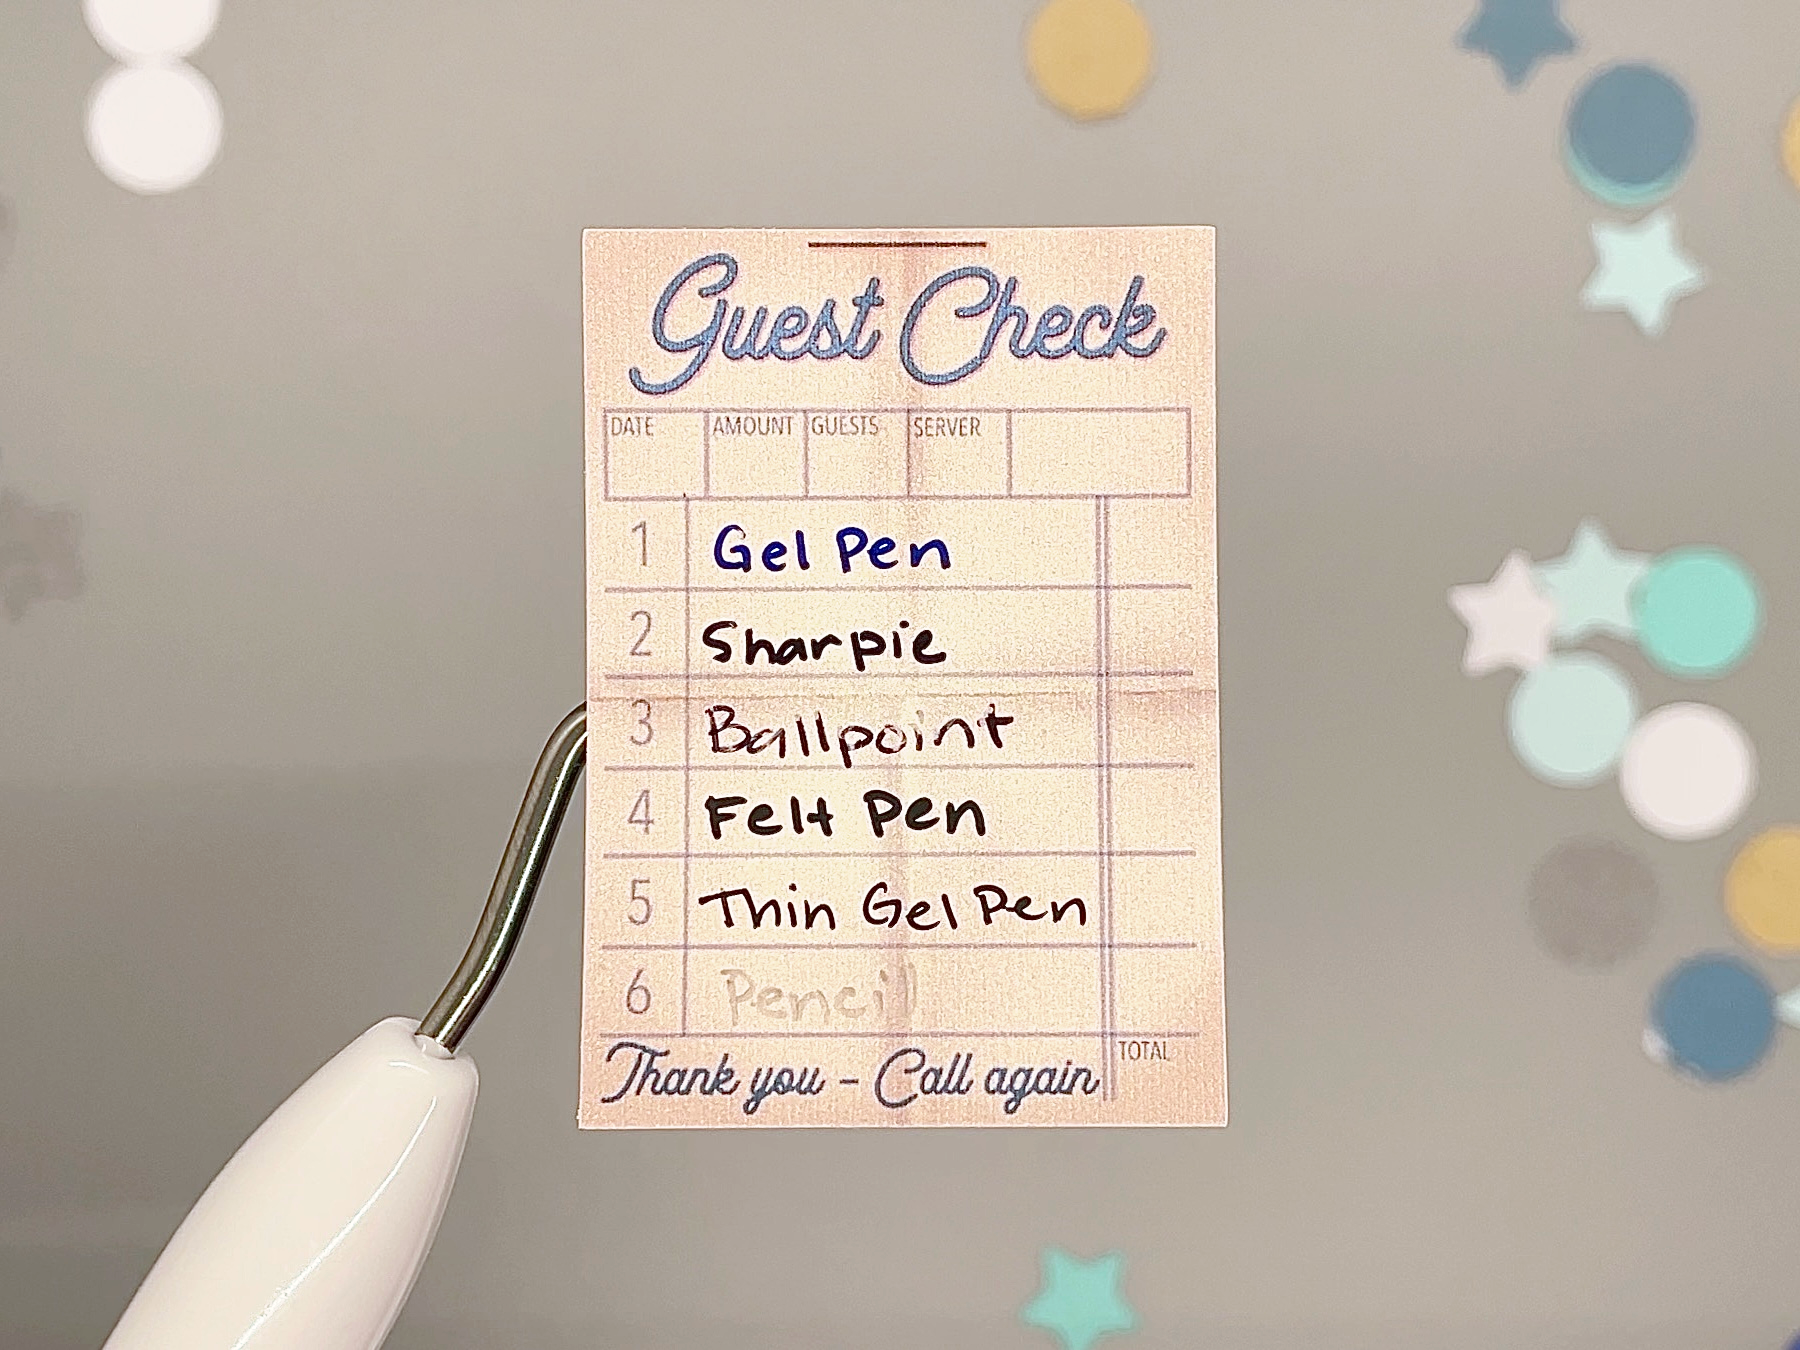 Guest Check
DATE AMOUNT GUESTS SERVER
1 Gel Pen
2 Sharpie
3 Ballpoint
4 Felt Pen
5 Thin Gel Pen
6 Pencil
Thank you - Call again TOTAL